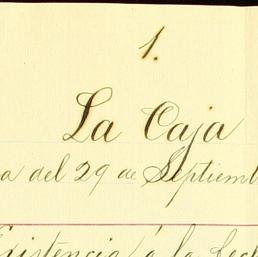 1.
La Caja
a del 29 de Septiemb
Existencia á la fech